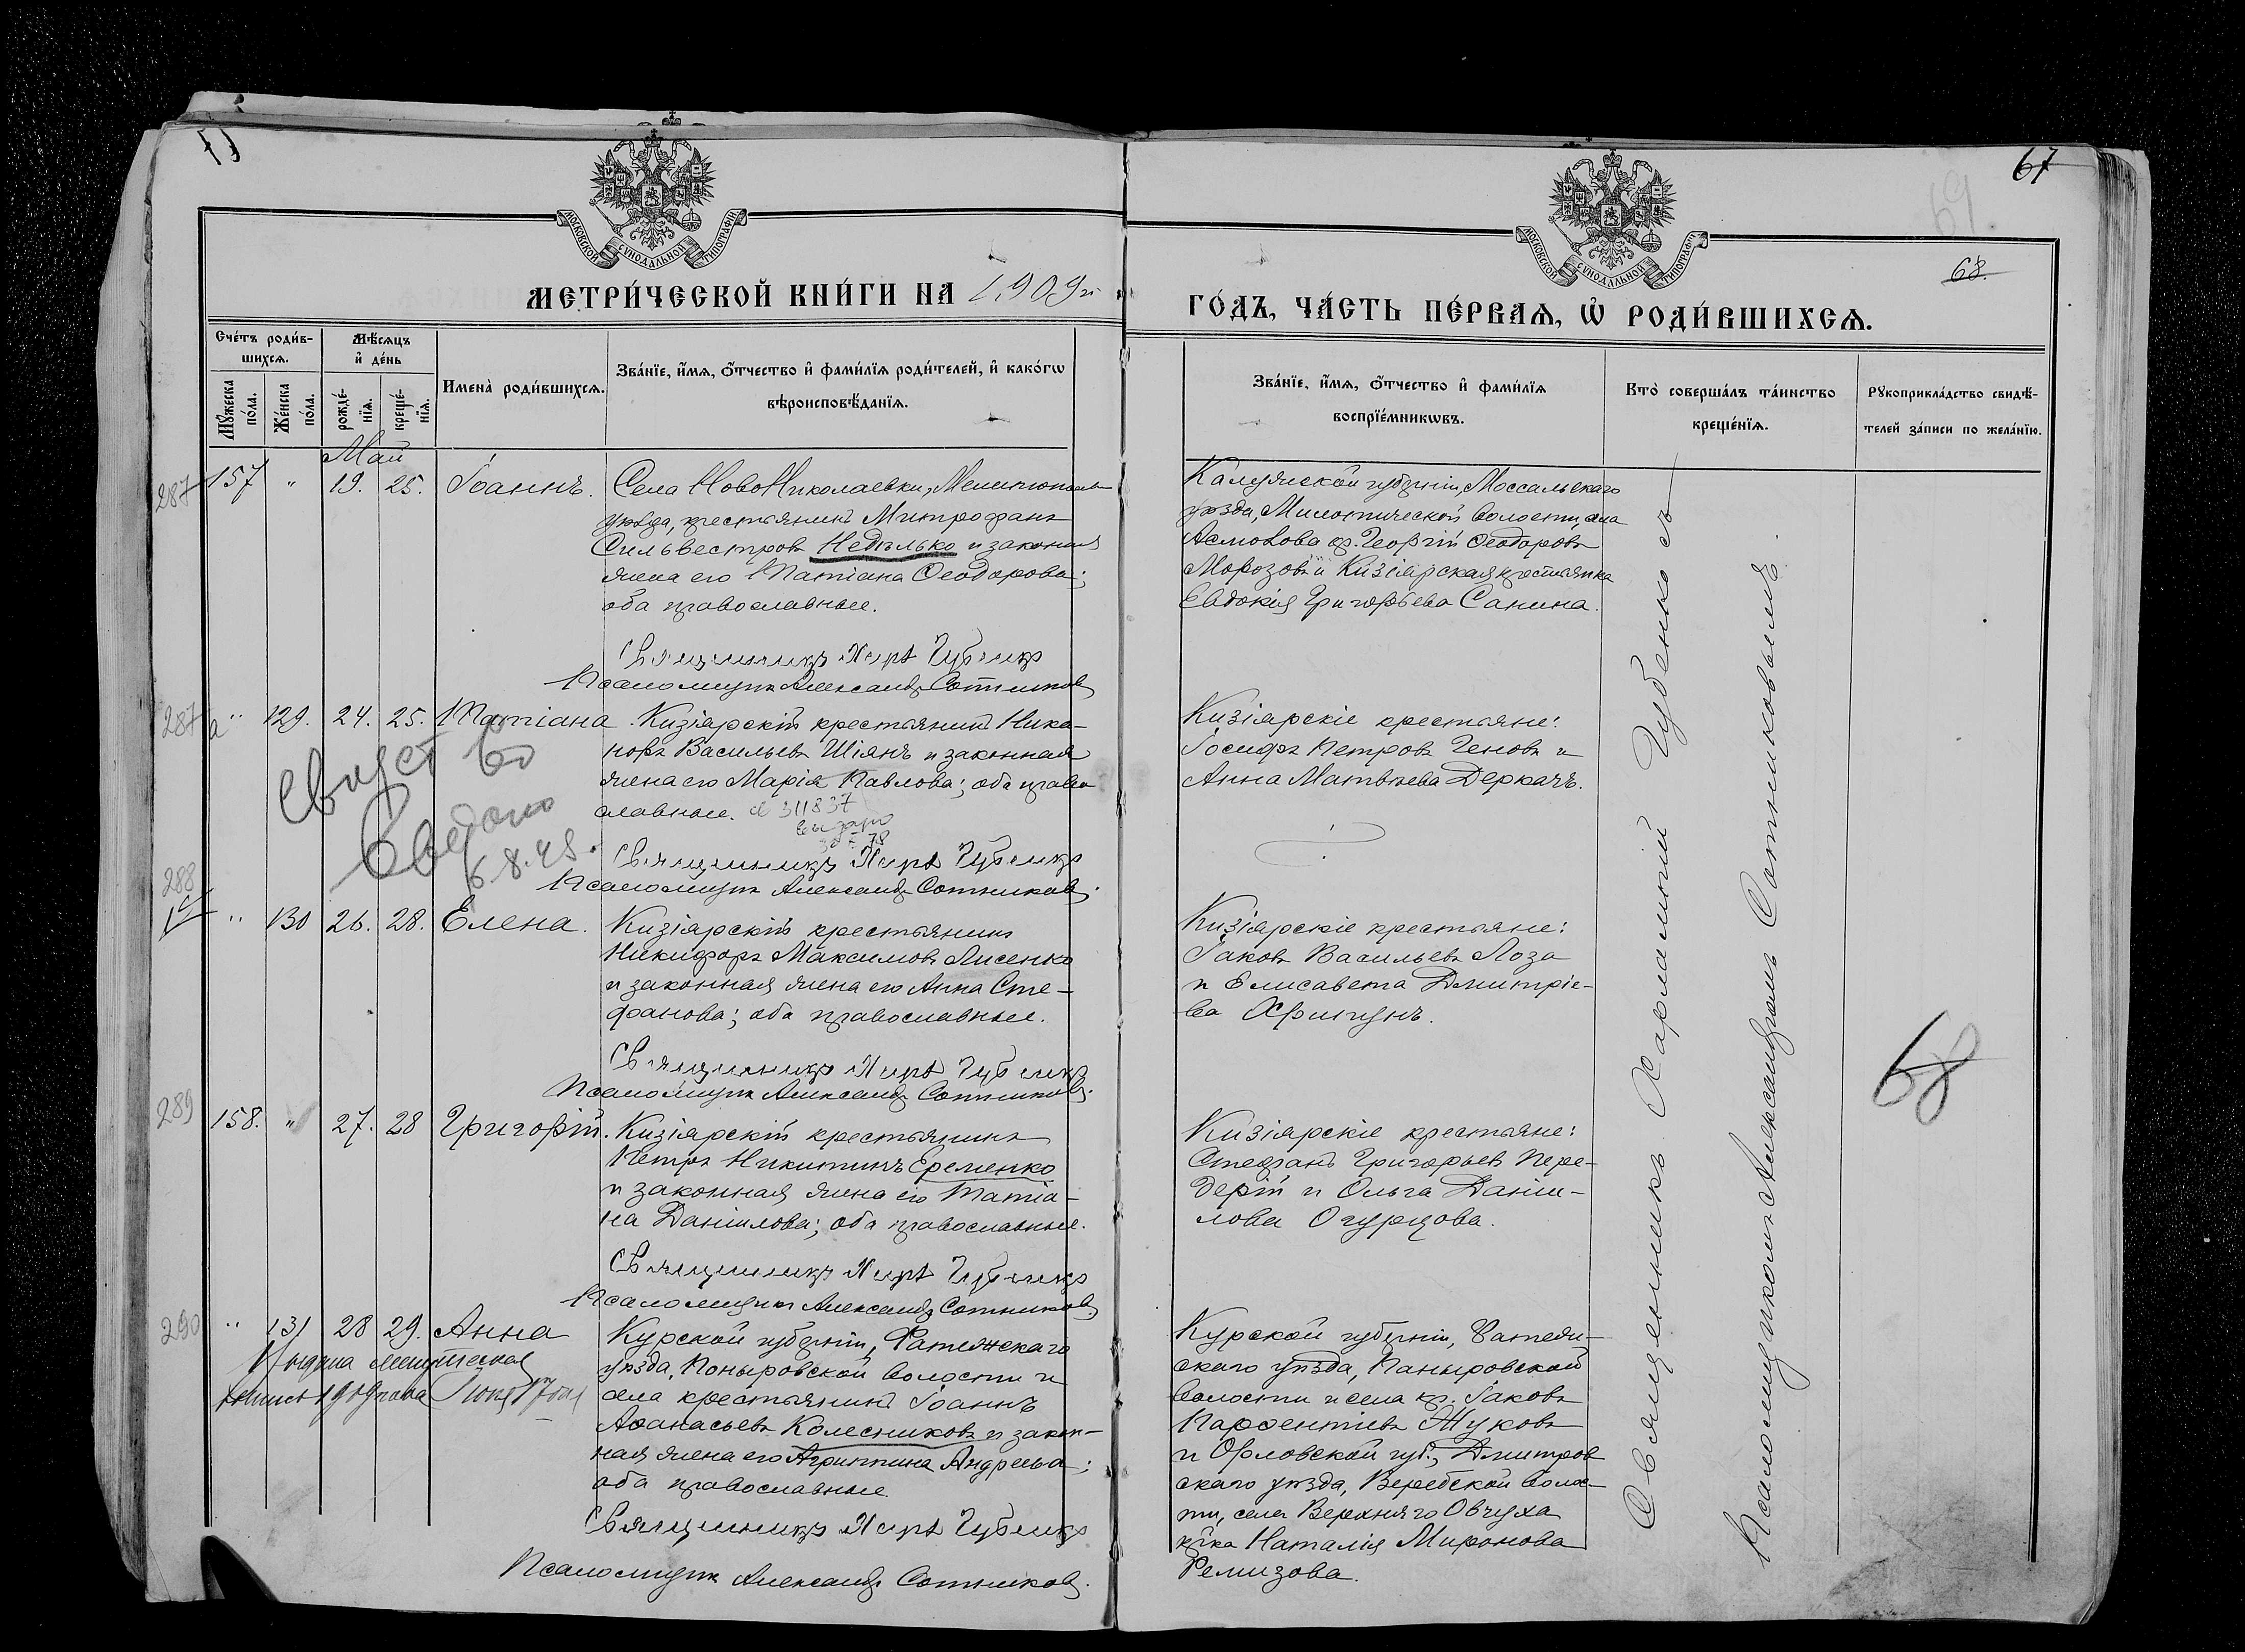 67
69
68.
МОСКОВСКОЙ СУНОДАЛЬНОЙ ТИПОГРАФІИ
МОСКОВСКОЙ СУНОДАЛЬНОЙ ТИПОГРАФІИ
МЕТРИ́ЧЕСКОЙ КНИ́ГИ НА 1909й
ГО́ДЪ, ЧА́СТЬ ПЕ́РВАѦ, Ѡ҆ РОДИ́ВШИХСѦ.
Сче́тъ роди́в-
шихсѧ.
Мꙋ́жеска
по́ла.
Же́нска
по́ла.
Мѣ́сѧцъ
и҆ де́нь
рожде́-
нїѧ.
креще́-
нїѧ.
Имена̀ роди́вшихсѧ.
Зва́нїе, и҆́мѧ, ѻ҆́тчество и҆ фами́лїѧ роди́телей, и҆ како́гѡ
вѣроисповѣ́данїѧ.
Зва́нїе, и҆́мѧ, ѻ҆́тчество и҆ фами́лїѧ
воспрїе́мникѡвъ.
Кто̀ соверша́лъ та́инство
креще́нїѧ.
Рꙋкоприкла́дство свидѣ́-
телей за́писи по жела́нїю.
Май
287 157 " 19. 25. Іоаннъ.
Села НовоНиколаевки, Мелитопольск
уѣзда, крестьянинъ Митрофанъ
Сильвестровъ Недѣлько и законная
жена его Татіана Ѳеодорова;
оба православные.
Священникъ Харл Губенко
Псаломщикъ Александръ Сотниковъ
Калужской губерніи, Моссальскаго
уѣзда, Милотической волости, села
кр. Георгій Ѳеодоровъ
Морозовъ и Кизіярская крестьянка
Евдокія Григорьева Санина.
287 а " 129. 24. 25. Татіана
Кизіярскій крестьянинъ Ника-
норъ Васильевъ Шіянъ и законная
жена его Марія Павлова; оба право
славные. 311837
выдано
78
Священникъ Харл Губенко
Псаломщикъ Александръ Сотниковъ.
Кизіярскіе крестьяне:
Іосифъ Петровъ Геновъ и
Анна Матвѣева Деркачъ.
6.8.45.
288 " 130 26. 28. Елена.
Кизіярскій крестьянинъ
Никифоръ Максимовъ Лисенко
и законная жена его Анна Сте-
фанова; оба православные.
Священникъ Харл Губенко
Псаломщикъ Александръ Сотниковъ.
Кизіярскіе крестьяне:
Іаковъ Васильевъ Лоза
и Елисавета Дмитріе-
ва
289 158. " 27. 28 Григорій.
Кизіярскій крестьянинъ
Петръ Никитинъ Еременко
и законная жена его Татіа-
на Даніилова; оба православные.
Священникъ Харл Губенко
Псаломщикъ Александръ Сотниковъ
Кизіярскіе крестьяне:
Стефанъ Григорьевъ Пере-
дерій и Ольга Даніи-
лова Огурцова.
290 " 131 28 29. Анна
Выдана метрическая
1909 года
Курской губерніи, Фатежскаго
уѣзда, Поныровской волости и
села крестьянинъ Іоаннъ
Аѳанасьевъ Колесниковъ и закон-
ная жена его Агриппина Андреева;
оба православные.
Священникъ Харл Губенко
Псаломщикъ Александръ Сотниковъ.
Курской губерніи, Фатеж-
скаго уѣзда, Паныровской
волости и села кр. Іаковъ
Парѳентіевъ Жуковъ
и Орловской губ., Дмитров
скаго уѣзда, Веребской волос-
ти, села Верхняго Овчуха
кр-ка Наталія Миронова
Ремизова.
Священникъ Харлампій Губенко съ
Псаломщикомъ Александромъ Сотниковымъ.
68